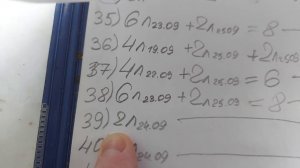 35) 6л23.09 + 2л25.09 = 8 —
36) 4л19.09 + 2л23.09 + 2л25.09
37) 4л22.09 + 2л25.09 = 6 —
38) 6л23.09 + 2л25.09 = 8 —
39) 2л24.09 —
40) 24.09 —